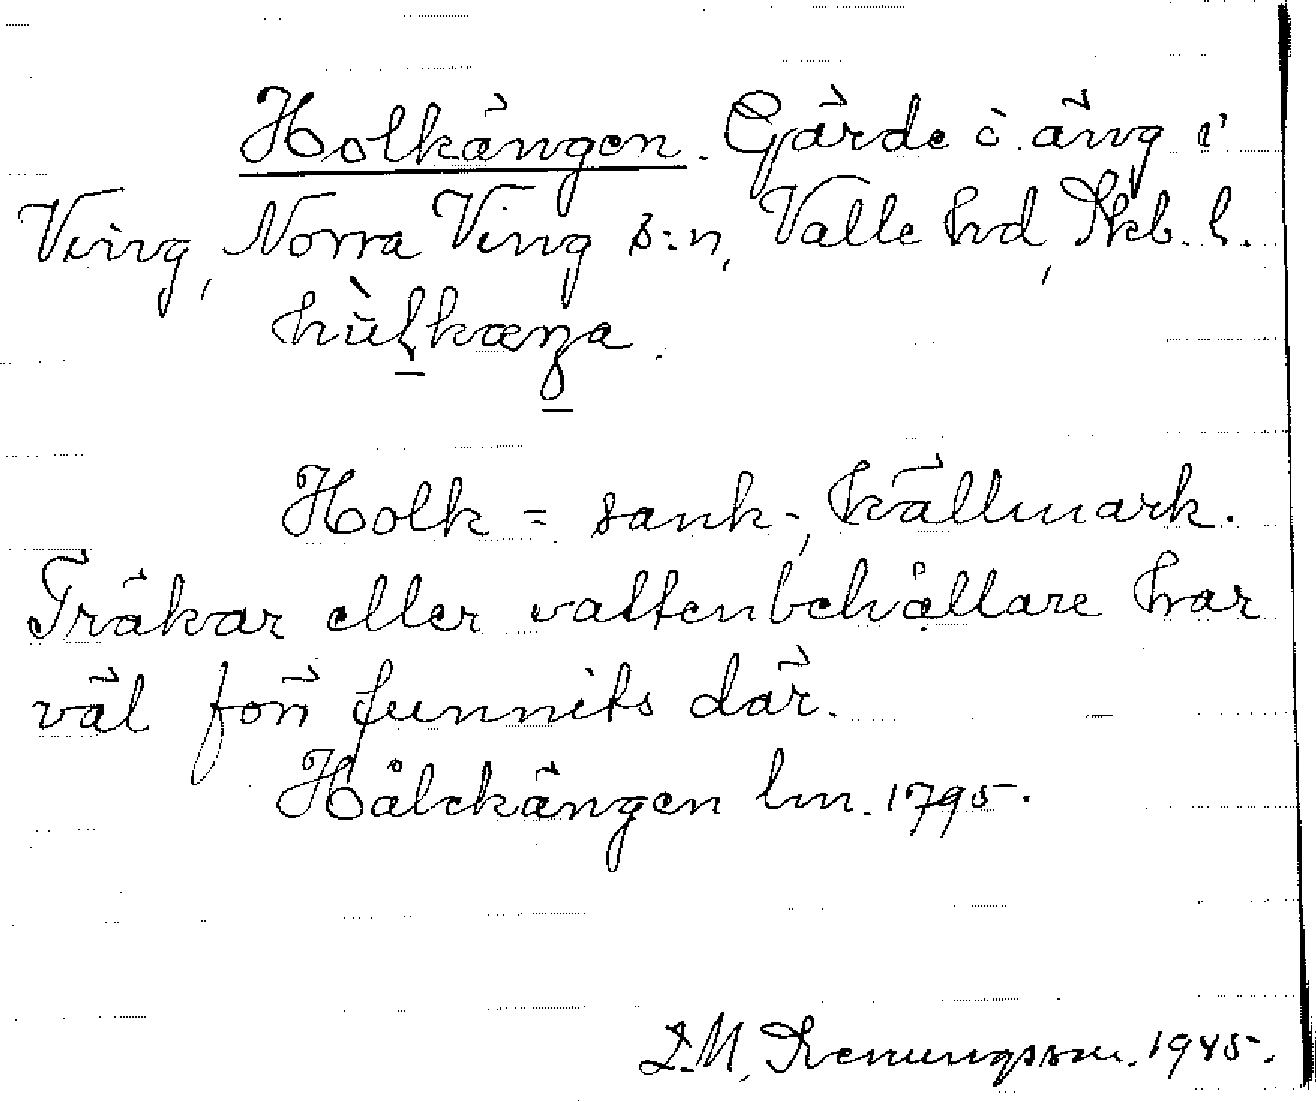 Holkängen. Gärde o. äng i
Ving, Norra Ving s:n, Valle hd, Skb. l.
hùlkæŋa.
Holk = sank-, källmark.
Träkar eller vattenbehållare har
väl förr funnits där.
Hålckängen lm. 1795.
1945.